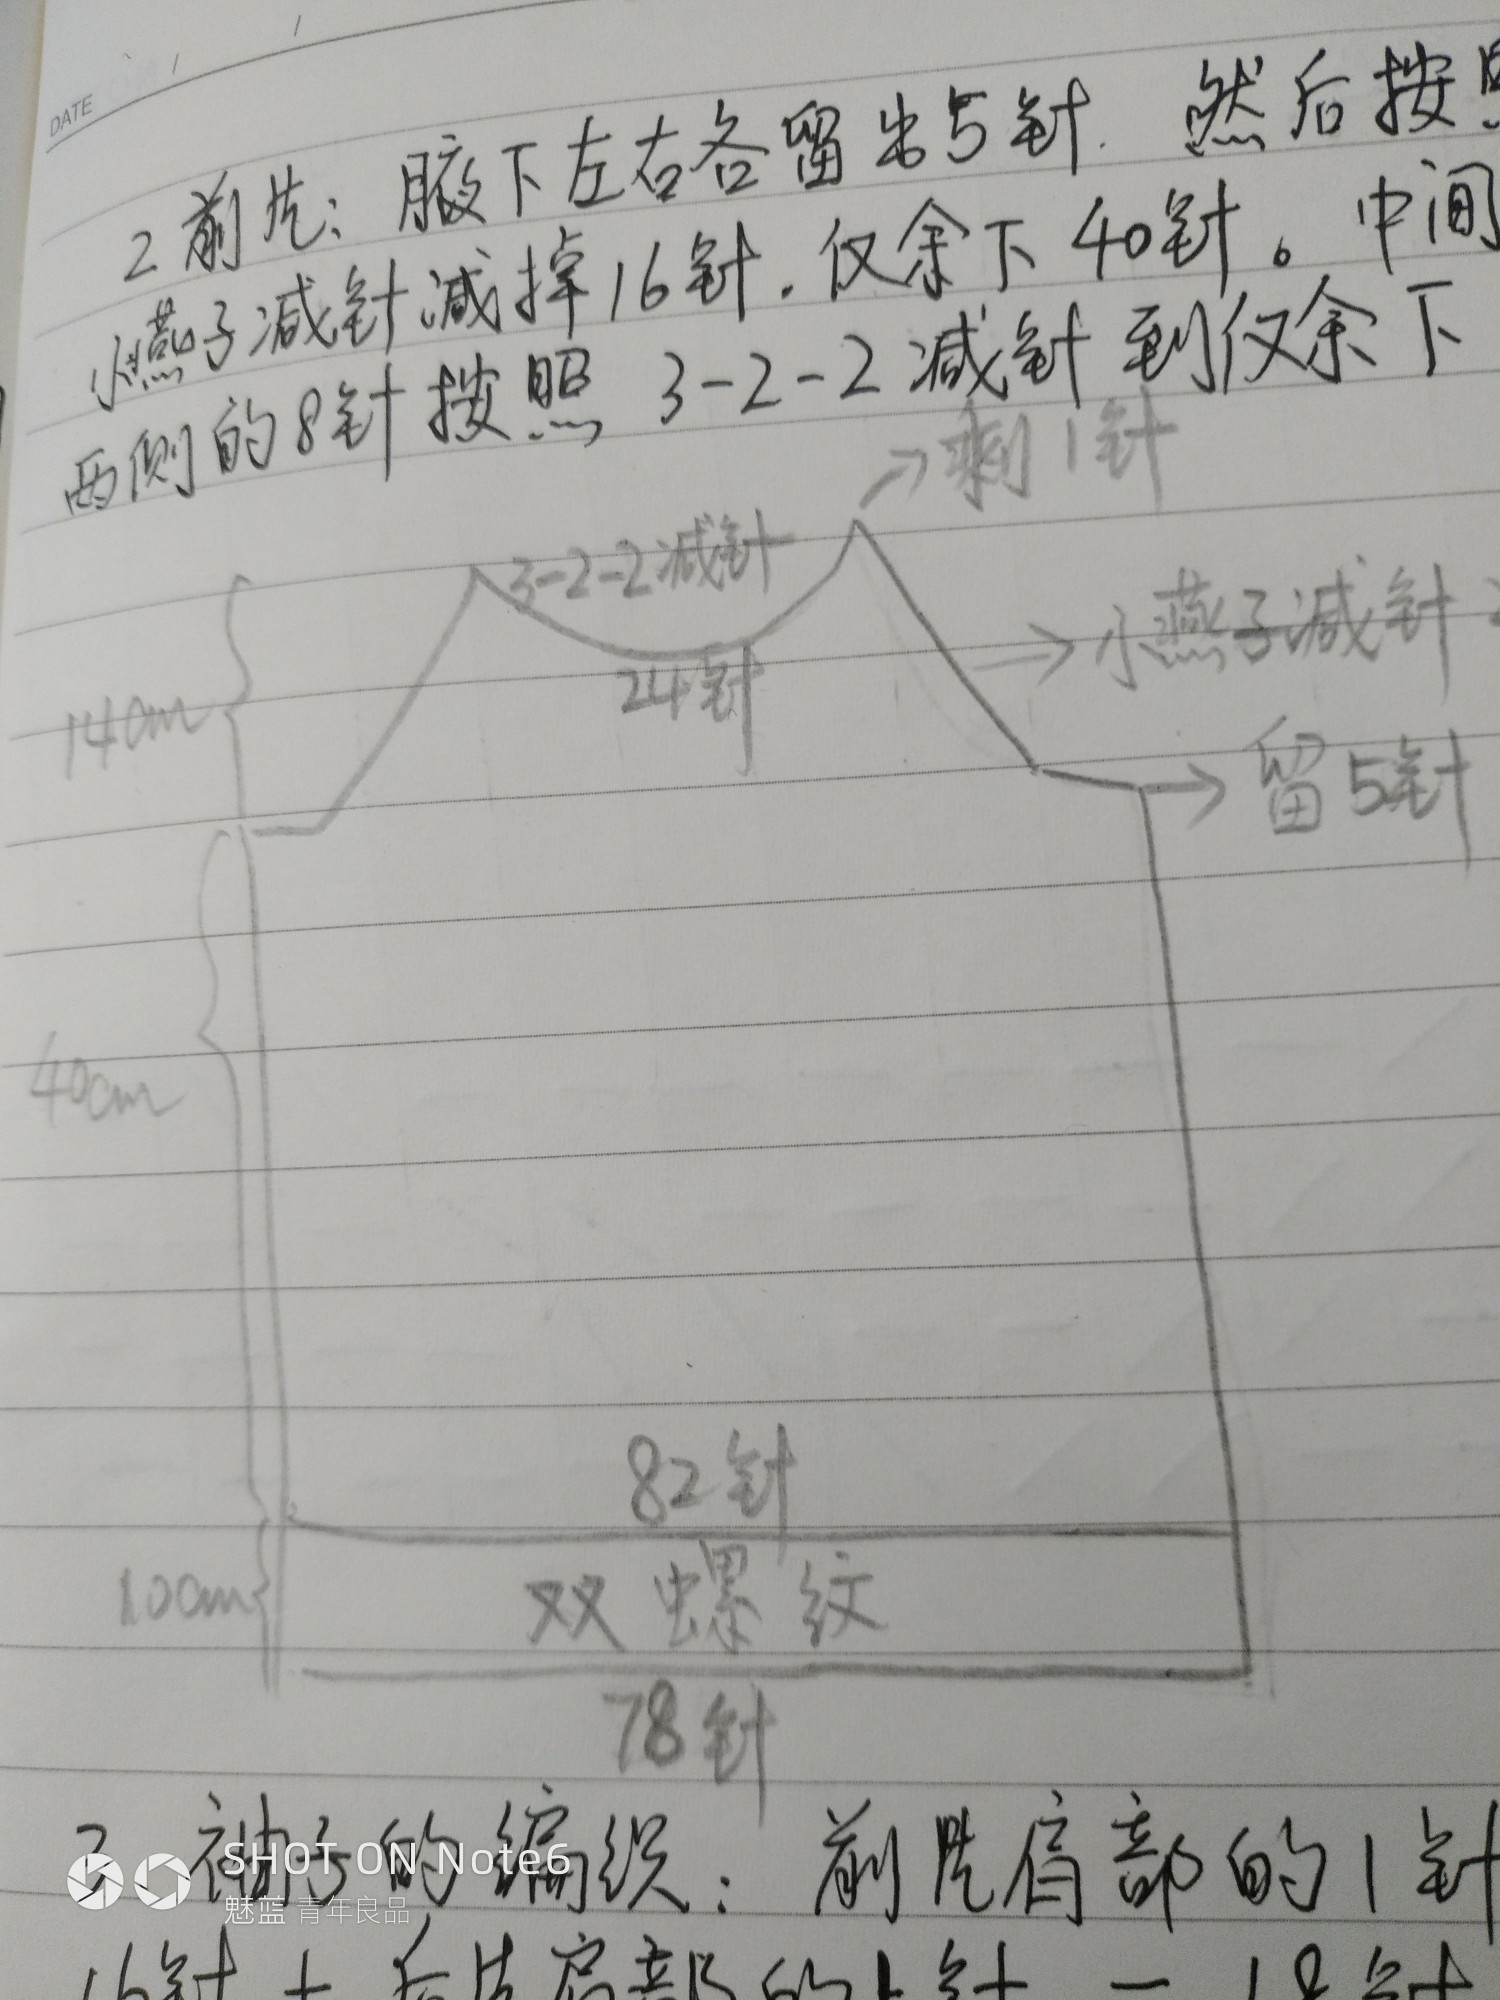 DATE
2 前片：腋下左右各留出5针．然后按照
小燕子减针减掉16针．仅余下40针。中间
两侧的8针按照 3-2-2减针到仅余下
→剩1针
3-2-2减针
24针
→小燕子减针
14cm
→留5针
40cm
82针
10cm
双螺纹
78针
3 袖子的编织：前片肩部的1针
16针＋后片肩部的1针＝18针
SHOT ON Note6
魅蓝 青年良品